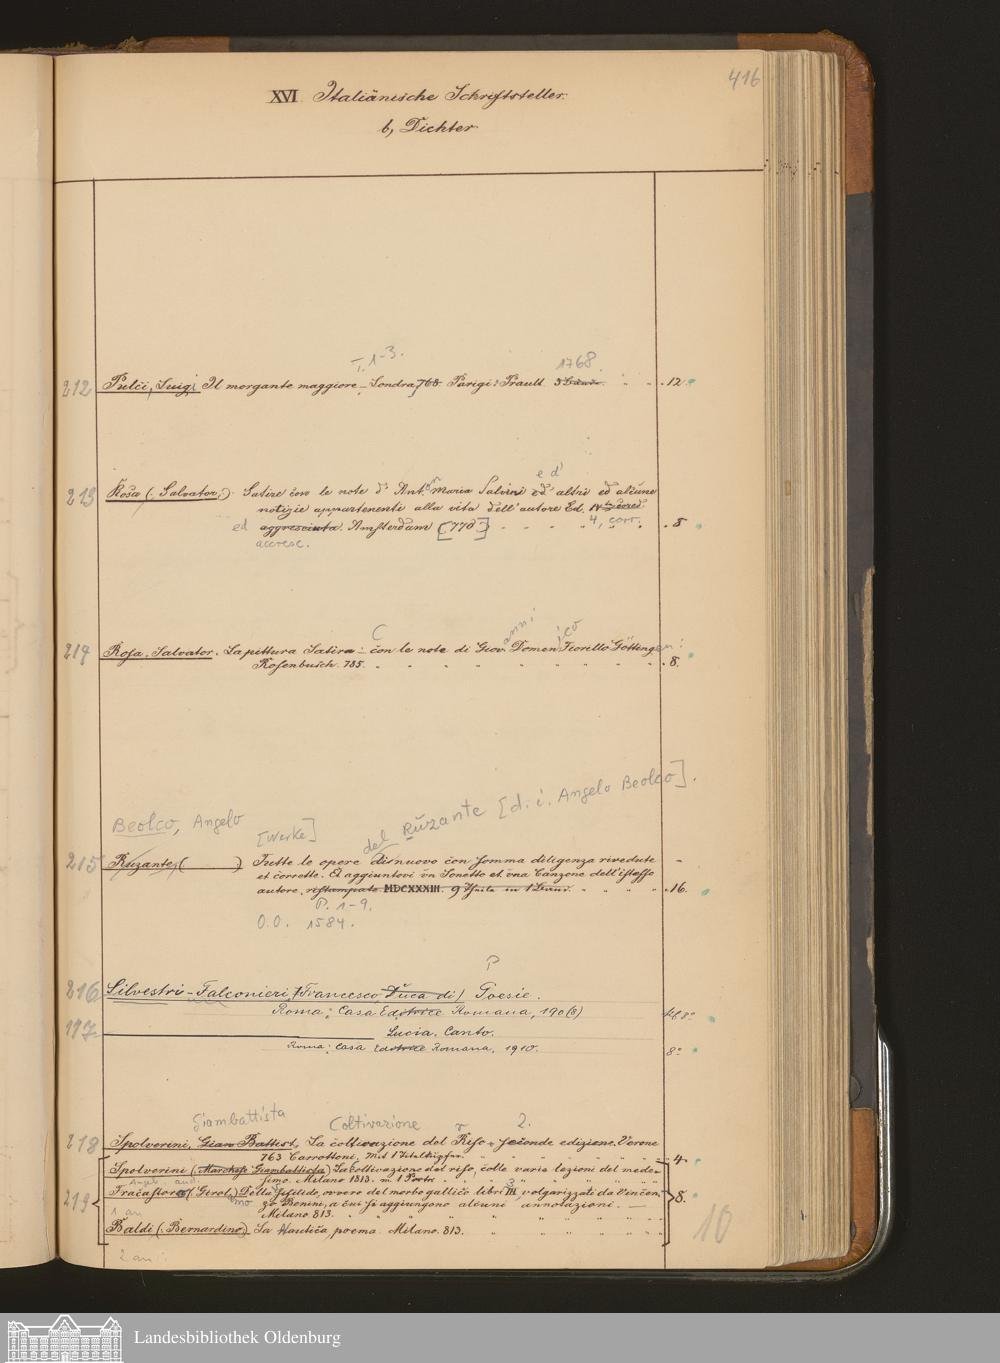 416
XVI Italiänische Schriftsteller.
b, Dichter
T. 1-3. 1768.
212 Pulci, Luigi, Il morgante maggiore - Londra, 768. Parigi: Prault 12.
e d'
213 Rosa (Salvator,) Satire con le note d' Ant. Maria Salvini ed altri ed alcune
notizie appartenenti alla vita dell' autore Ed.
ed aggresciuta. Amsterdam [770] 4, corr. 8
accresc.
C anni ico
214 Rosa. Salvator. La pittura Satira: con le note di Giov. Domen Fiorello Götting en:
Rosenbusch. 785. 8.
Beolco, Angelo [Werke] del Ruzante [d. i. Angelo Beolco].
215 Ruzante, ( ) Tutte le opere di nuovo con somma diligenza rivedute
et corrette. Et aggiuntovi un Sonetto et una Canzone dell' istesso
autore, ristampate MDCXXXIII. 9 Theile in 1 Band. 16.
P. 1-9.
O.O. 1584.
P
216 Silvestri-Falconieri, Francesco Duca di) Poesie.
Roma: Casa Editrice Romana, 190(8) 8°
217 Lucia. Canto.
Roma: Casa Editrice Romana, 1910. 8°
Giambattista Coltivazione r 2.
218 Spolverini, Gian Battist, La coltivazione del Riso, seconde edizione. Verona
763 Carrottoni, Mit 1 Titelkupfer. 4.
Spolverini (Marchese Giambattista) La coltivazione del riso, colle varie lezioni del mede-
simo. Milano 1813. m. 1 Portr.
219 Fracastoro (Girol.) Della sifilide, ovvero del morbo gallico libri III, volgarizzati da Vincen- 8.
zo Benini, a cui si aggiungono alcuni annotazioni.
1 an Milano 813.
Baldi (Bernardino) La Nautica, poema. Milano. 813.
2 an
10
Landesbibliothek Oldenburg